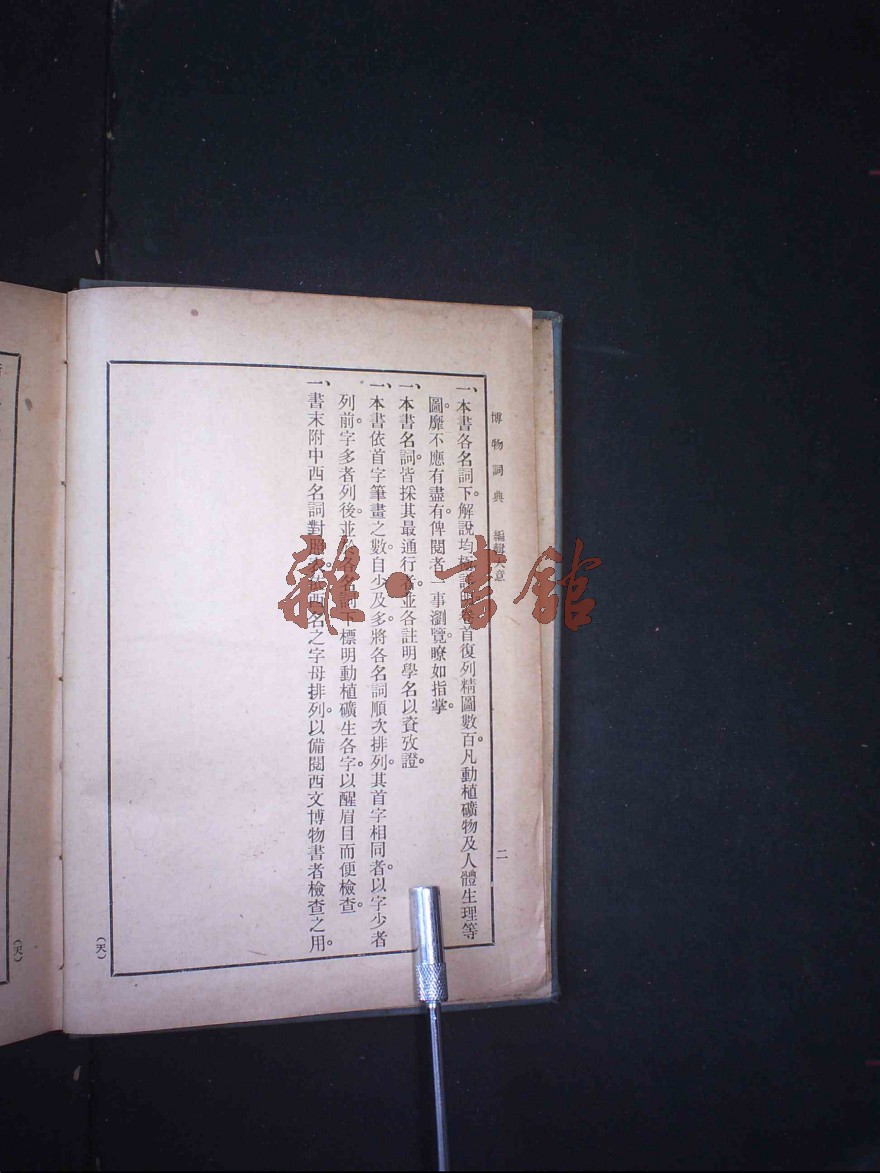 博物詞典 編輯大意
二
一、本書各名詞下。解說均極詳明。卷首復列精圖數百。凡動植礦物及人體生理等
圖。靡不應有盡有。俾閱者一事瀏覽。瞭如指掌。
一、本書名詞。皆採其最通行者。並各註明學名以資攷證。
一、本書依首字筆畫之數。自少及多。將各名詞順次排列。其首字相同者。以字少者
列前。字多者列後。並於各名詞下標明動植礦生各字。以醒眉目而便檢查。
一、書末附中西名詞對照表。西名之字母排列。以備閱西文博物書者檢查之用。
(天)
(天)
雜·書館